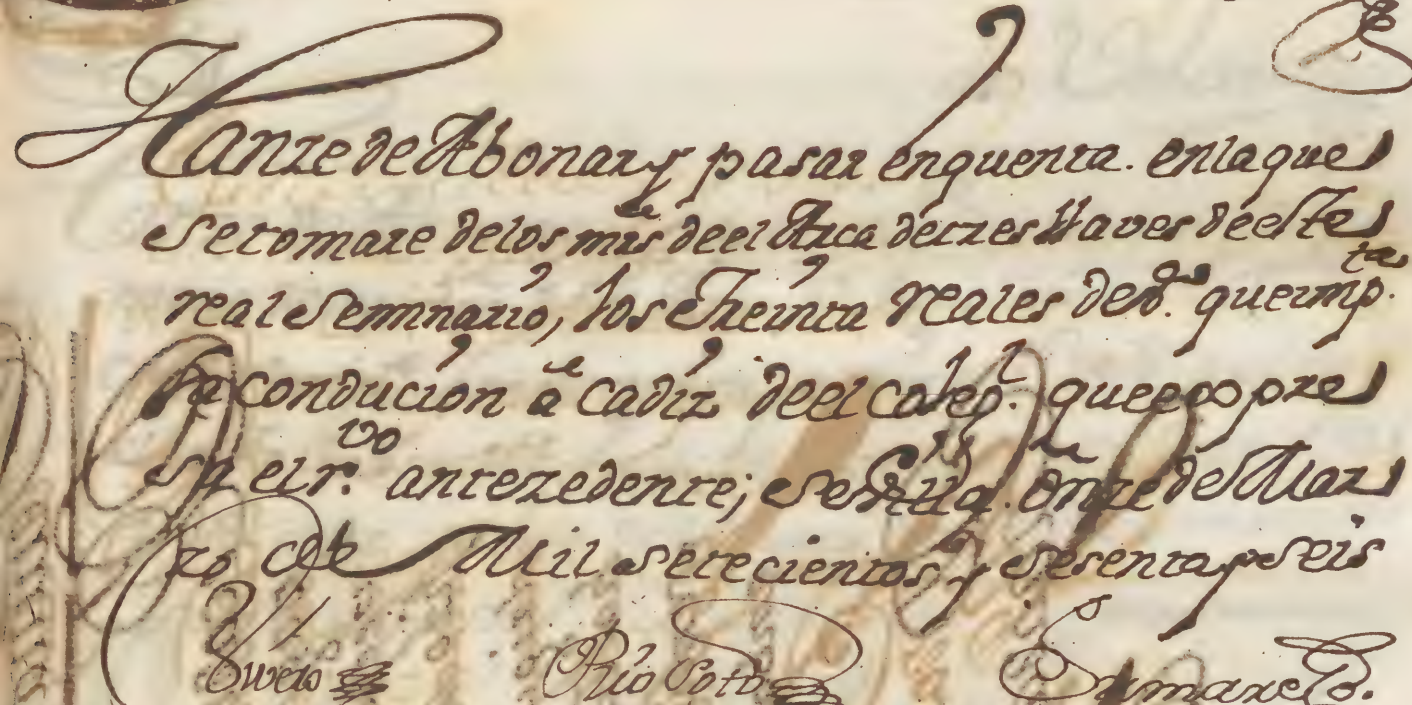 Hanze de Abonar y pasar en quenta. en la que
se tomare de los mrs̃ de el Arca de tres llaves de este
real Seminario, los Treinta reales de vo.n que imp.tta
la condución â Cadiz de el coleg.l que expre
sa el r.vo antezedente; Sevilla. onze de Mar
zo de Mil setecientos y sesenta y seis
Rio Soto